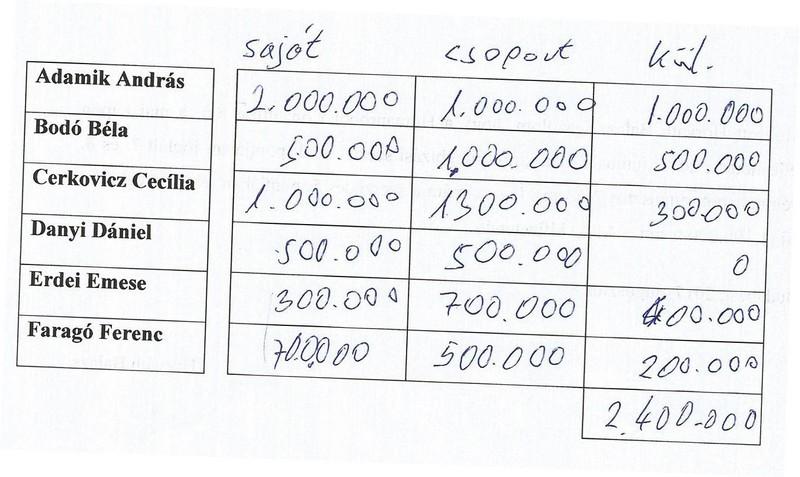 saját csoport kül.
Adamik András 2.000.000 1.000.000 1.000.000
Bodó Béla 500.000 1.000.000 500.000
Cerkovicz Cecília 1.000.000 1300.000 300.000
Danyi Dániel 500.000 500.000 0
Erdei Emese 300.000 700.000 400.000
Faragó Ferenc 700.000 500.000 200.000
2.400.000